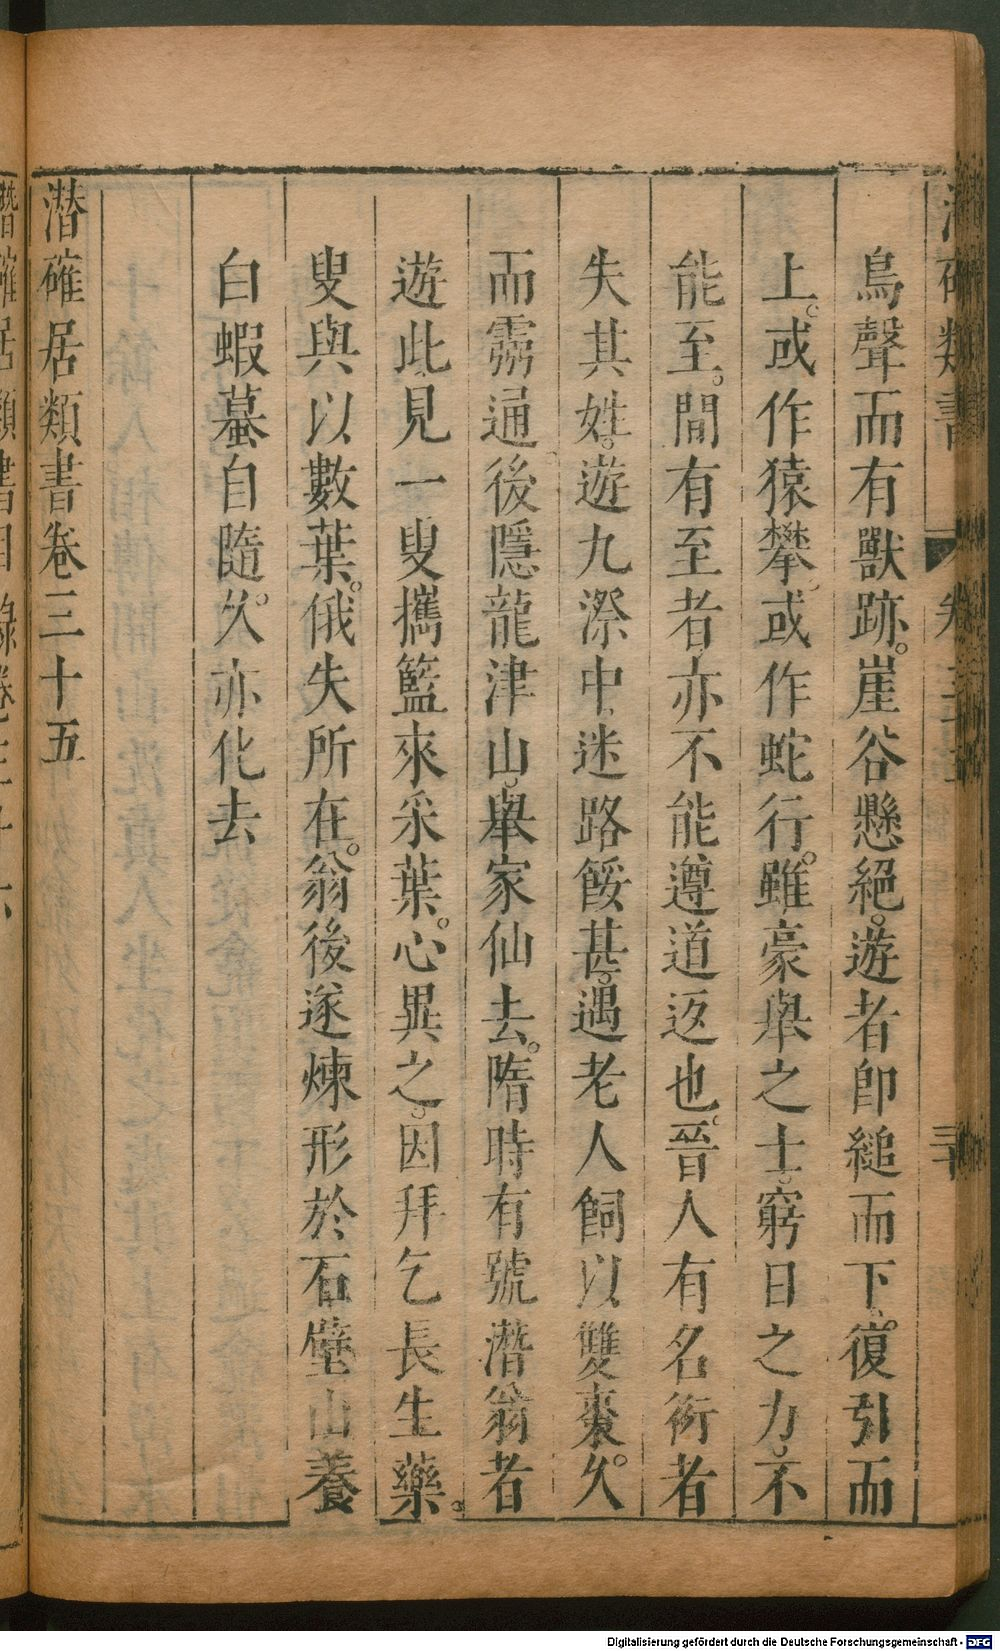 鳥聲而有獸跡。崖谷懸絕。遊者卽縋而下。復引而
上。或作猿攀。或作蛇行。雖豪舉之士。窮日之力。不
能至。間有至者亦不能遵道返也。晉人有名術者
失其姓。遊九漈中。迷路餒甚。遇老人飼以雙棗。久
而霛通。後隱龍津山。舉家仙去。隋時有號潛翁者
遊此。見一叟攜籃來采葉。心異之。因拜乞長生藥。
叟與以數葉。俄失所在。翁後遂煉形於石壁山養
白蝦蟇自隨。久亦化去
潛確居類書卷三十五
Digitalisierung gefördert durch die Deutsche Forschungsgemeinschaft - DFG